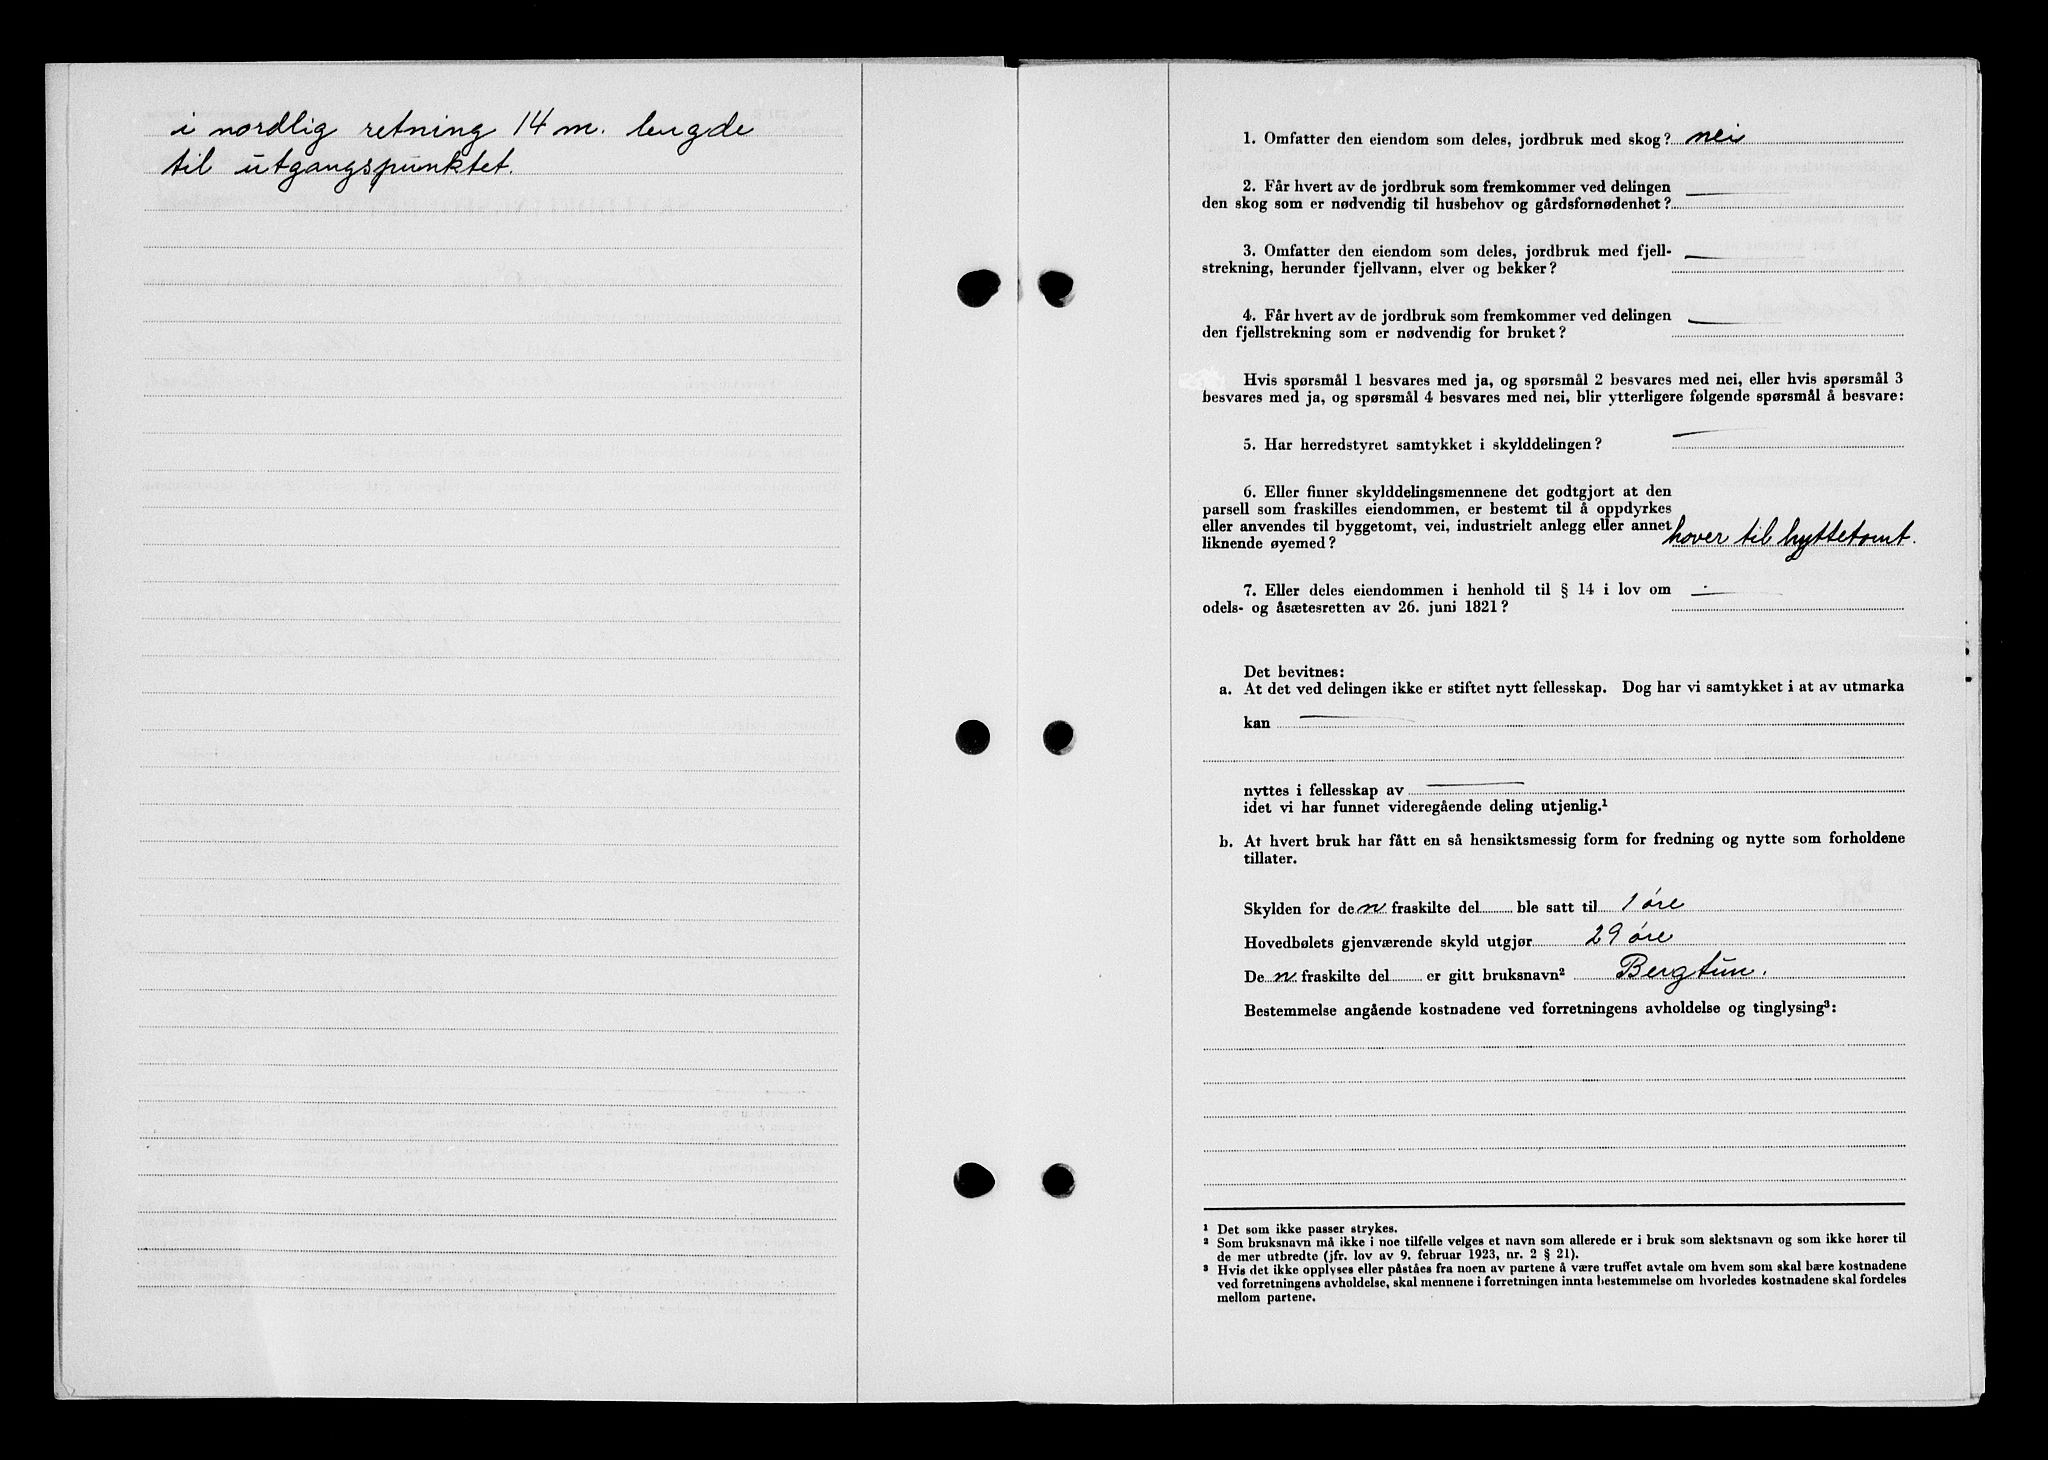 i nordlig retning 14 m. lengde
til utgangspunktet.
1. Omfatter den eiendom som deles, jordbruk med skog? nei
2. Får hvert av de jordbruk som fremkommer ved delingen
den skog som er nødvendig til husbehov og gårdsfornødenhet?
3. Omfatter den eiendom som deles, jordbruk med fjell-
strekning, herunder fjellvann, elver og bekker?
4. Får hvert av de jordbruk som fremkommer ved delingen
den fjellstrekning som er nødvendig for bruket?
Hvis spørsmål 1 besvares med ja, og spørsmål 2 besvares med nei, eller hvis spørsmål 3
besvares med ja, og spørsmål 4 besvares med nei, blir ytterligere følgende spørsmål å besvare:
5. Har herredstyret samtykket i skylddelingen?
6. Eller finner skylddelingsmennene det godtgjort at den
parsell som fraskilles eiendommen, er bestemt til å oppdyrkes
eller anvendes til byggetomt, vei, industrielt anlegg eller annet
liknende øyemed? høver til hyttetomt.
7. Eller deles eiendommen i henhold til § 14 i lov om
odels- og åsætesretten av 26. juni 1821?
Det bevitnes:
a. At det ved delingen ikke er stiftet nytt fellesskap. Dog har vi samtykket i at av utmarka
kan
nyttes i fellesskap av
idet vi har funnet videregående deling utjenlig.¹
b. At hvert bruk har fått en så hensiktsmessig form for fredning og nytte som forholdene
tillater.
Skylden for de n fraskilte del ble satt til 1 øre
Hovedbølets gjenværende skyld utgjør 29 øre
De n fraskilte del er gitt bruksnavn² Bergtun.
Bestemmelse angående kostnadene ved forretningens avholdelse og tinglysing³:
¹ Det som ikke passer strykes.
² Som bruksnavn må ikke i noe tilfelle velges et navn som allerede er i bruk som slektsnavn og som ikke hører til
de mer utbredte (jfr. lov av 9. februar 1923, nr. 2 § 21).
³ Hvis det ikke opplyses eller påståes fra noen av partene å være truffet avtale om hvem som skal bære kostnadene
ved forretningens avholdelse, skal mennene i forretningen innta bestemmelse om hvorledes kostnadene skal fordeles
mellom partene.